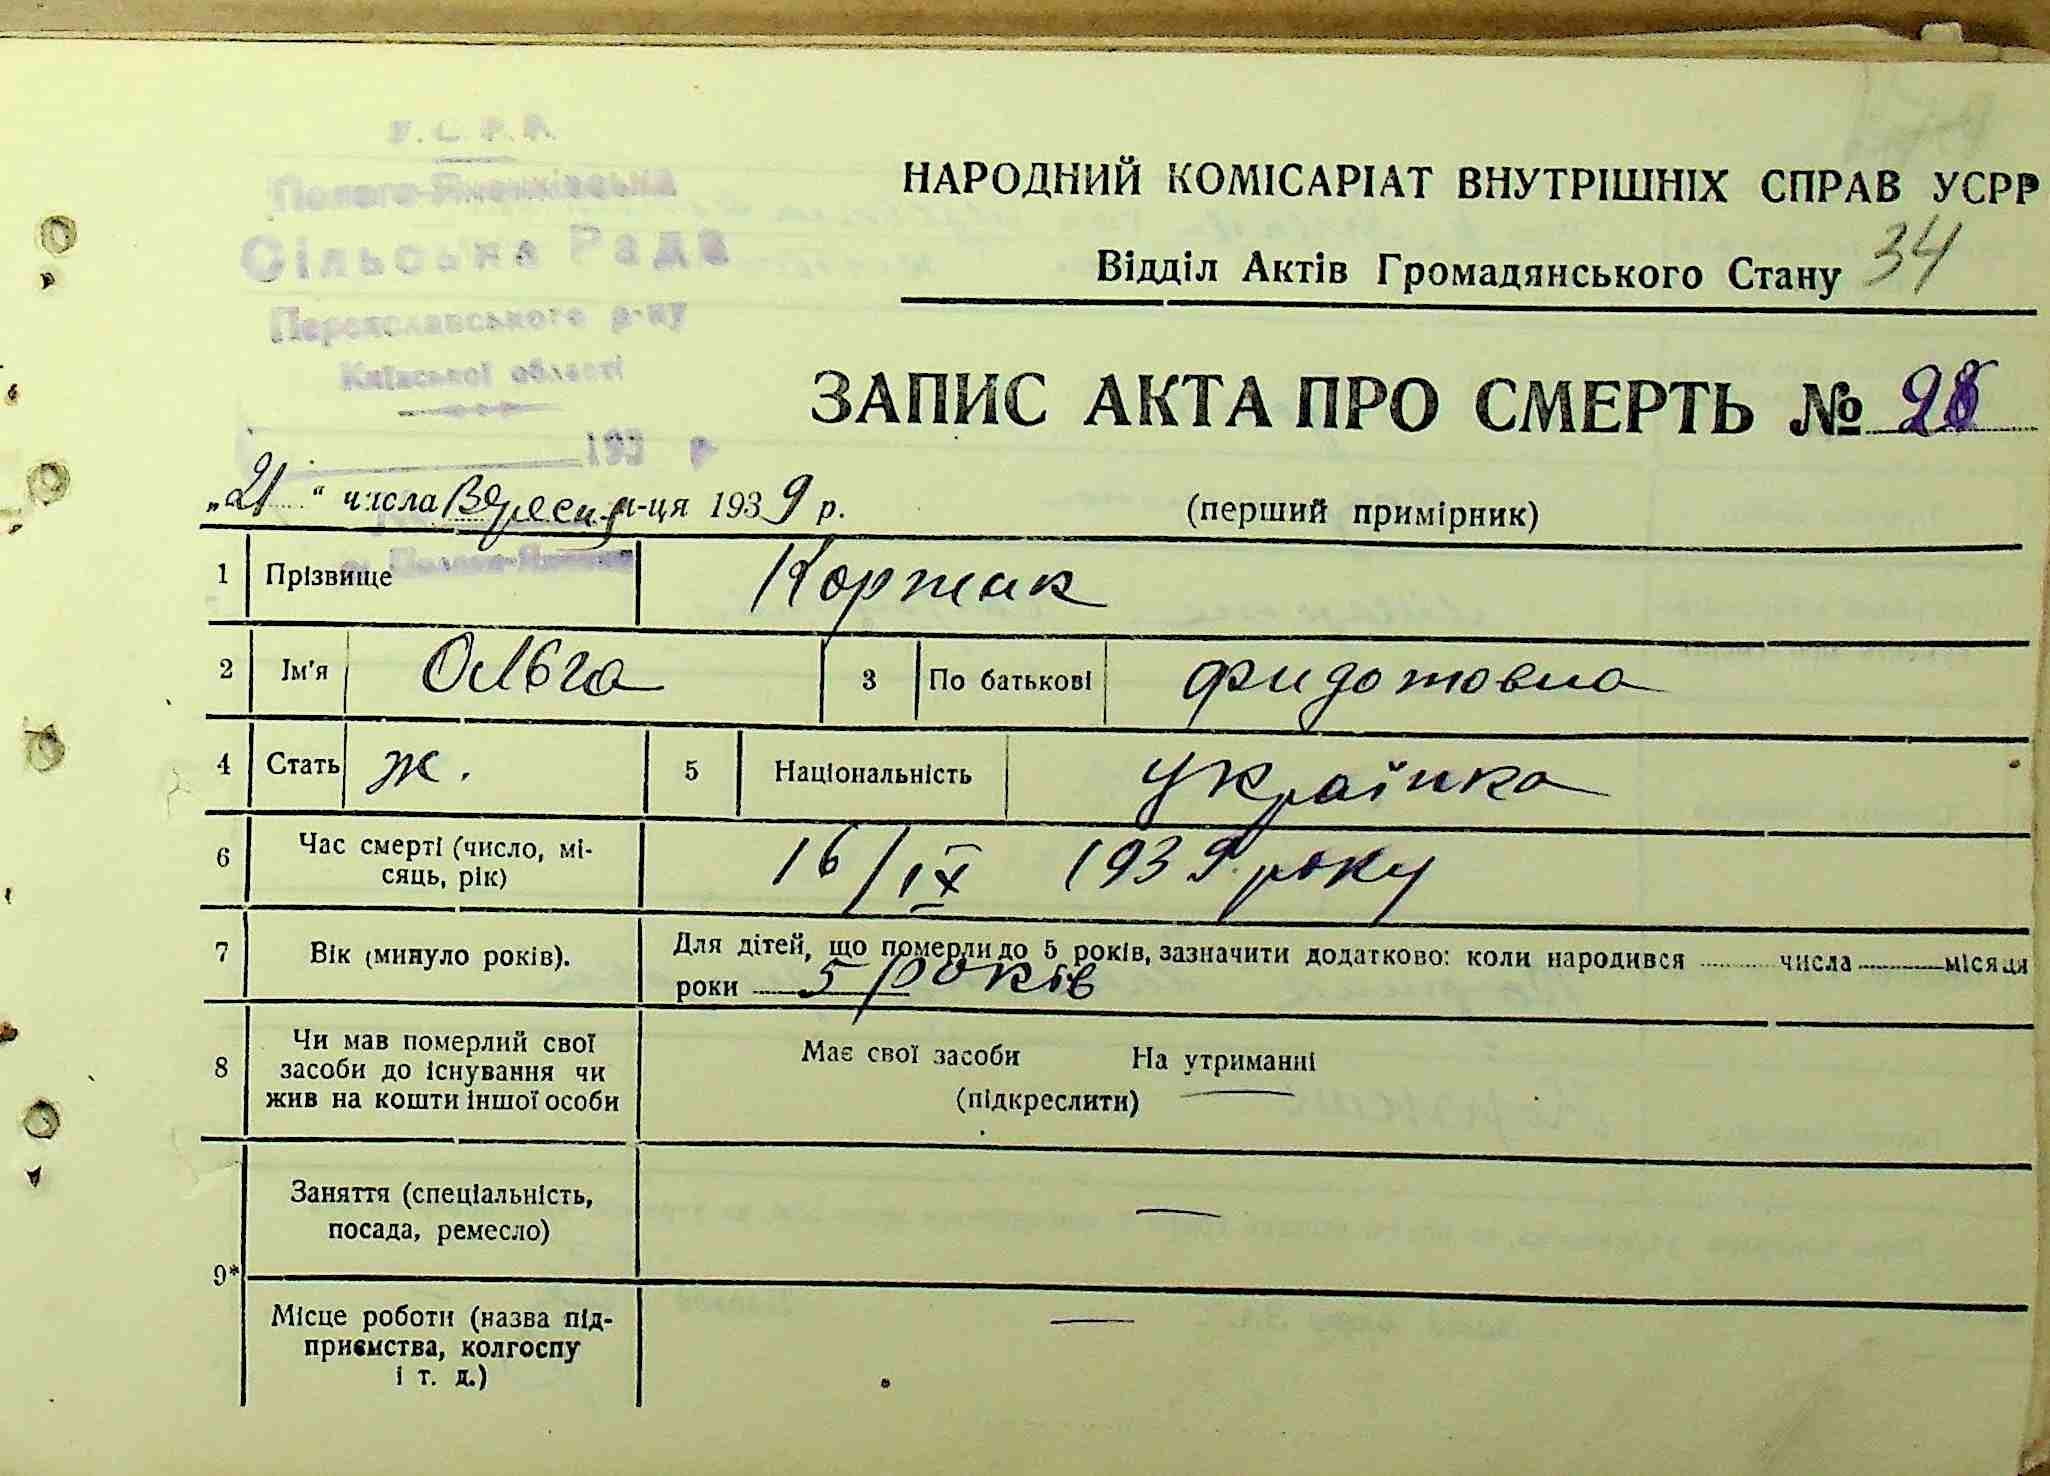 У. С. Р. Р.
Пологи-Яненківська
Сільська Рада
Переяславського р-ну
Київської області
193 р.
НАРОДНИЙ КОМІСАРІАТ ВНУТРІШНІХ СПРАВ УСРР
Відділ Актів Громадянського Стану 34
ЗАПИС АКТА ПРО СМЕРТЬ №
„21“ числа Вересня м-ця 1939 р. (перший примірник)
1 Прізвище Коржик
2 Ім'я Ольга 3 По батькові Фидотовна
4 Стать Ж. 5 Національність українка
6 Час смерті (число, мі-
сяць, рік) 16/IX 1939 року
7 Вік (минуло років). Для дітей, що померли до 5 років, зазначити додатково: коли народився ...... числа ...... місяця
роки 5 років
8 Чи мав померлий свої
засоби до існування чи
жив на кошти іншої особи
Має свої засоби На утриманні
(підкреслити)
Заняття (спеціальність,
посада, ремесло) —
9*
Місце роботи (назва під-
приємства, колгоспу
і т. д.) —